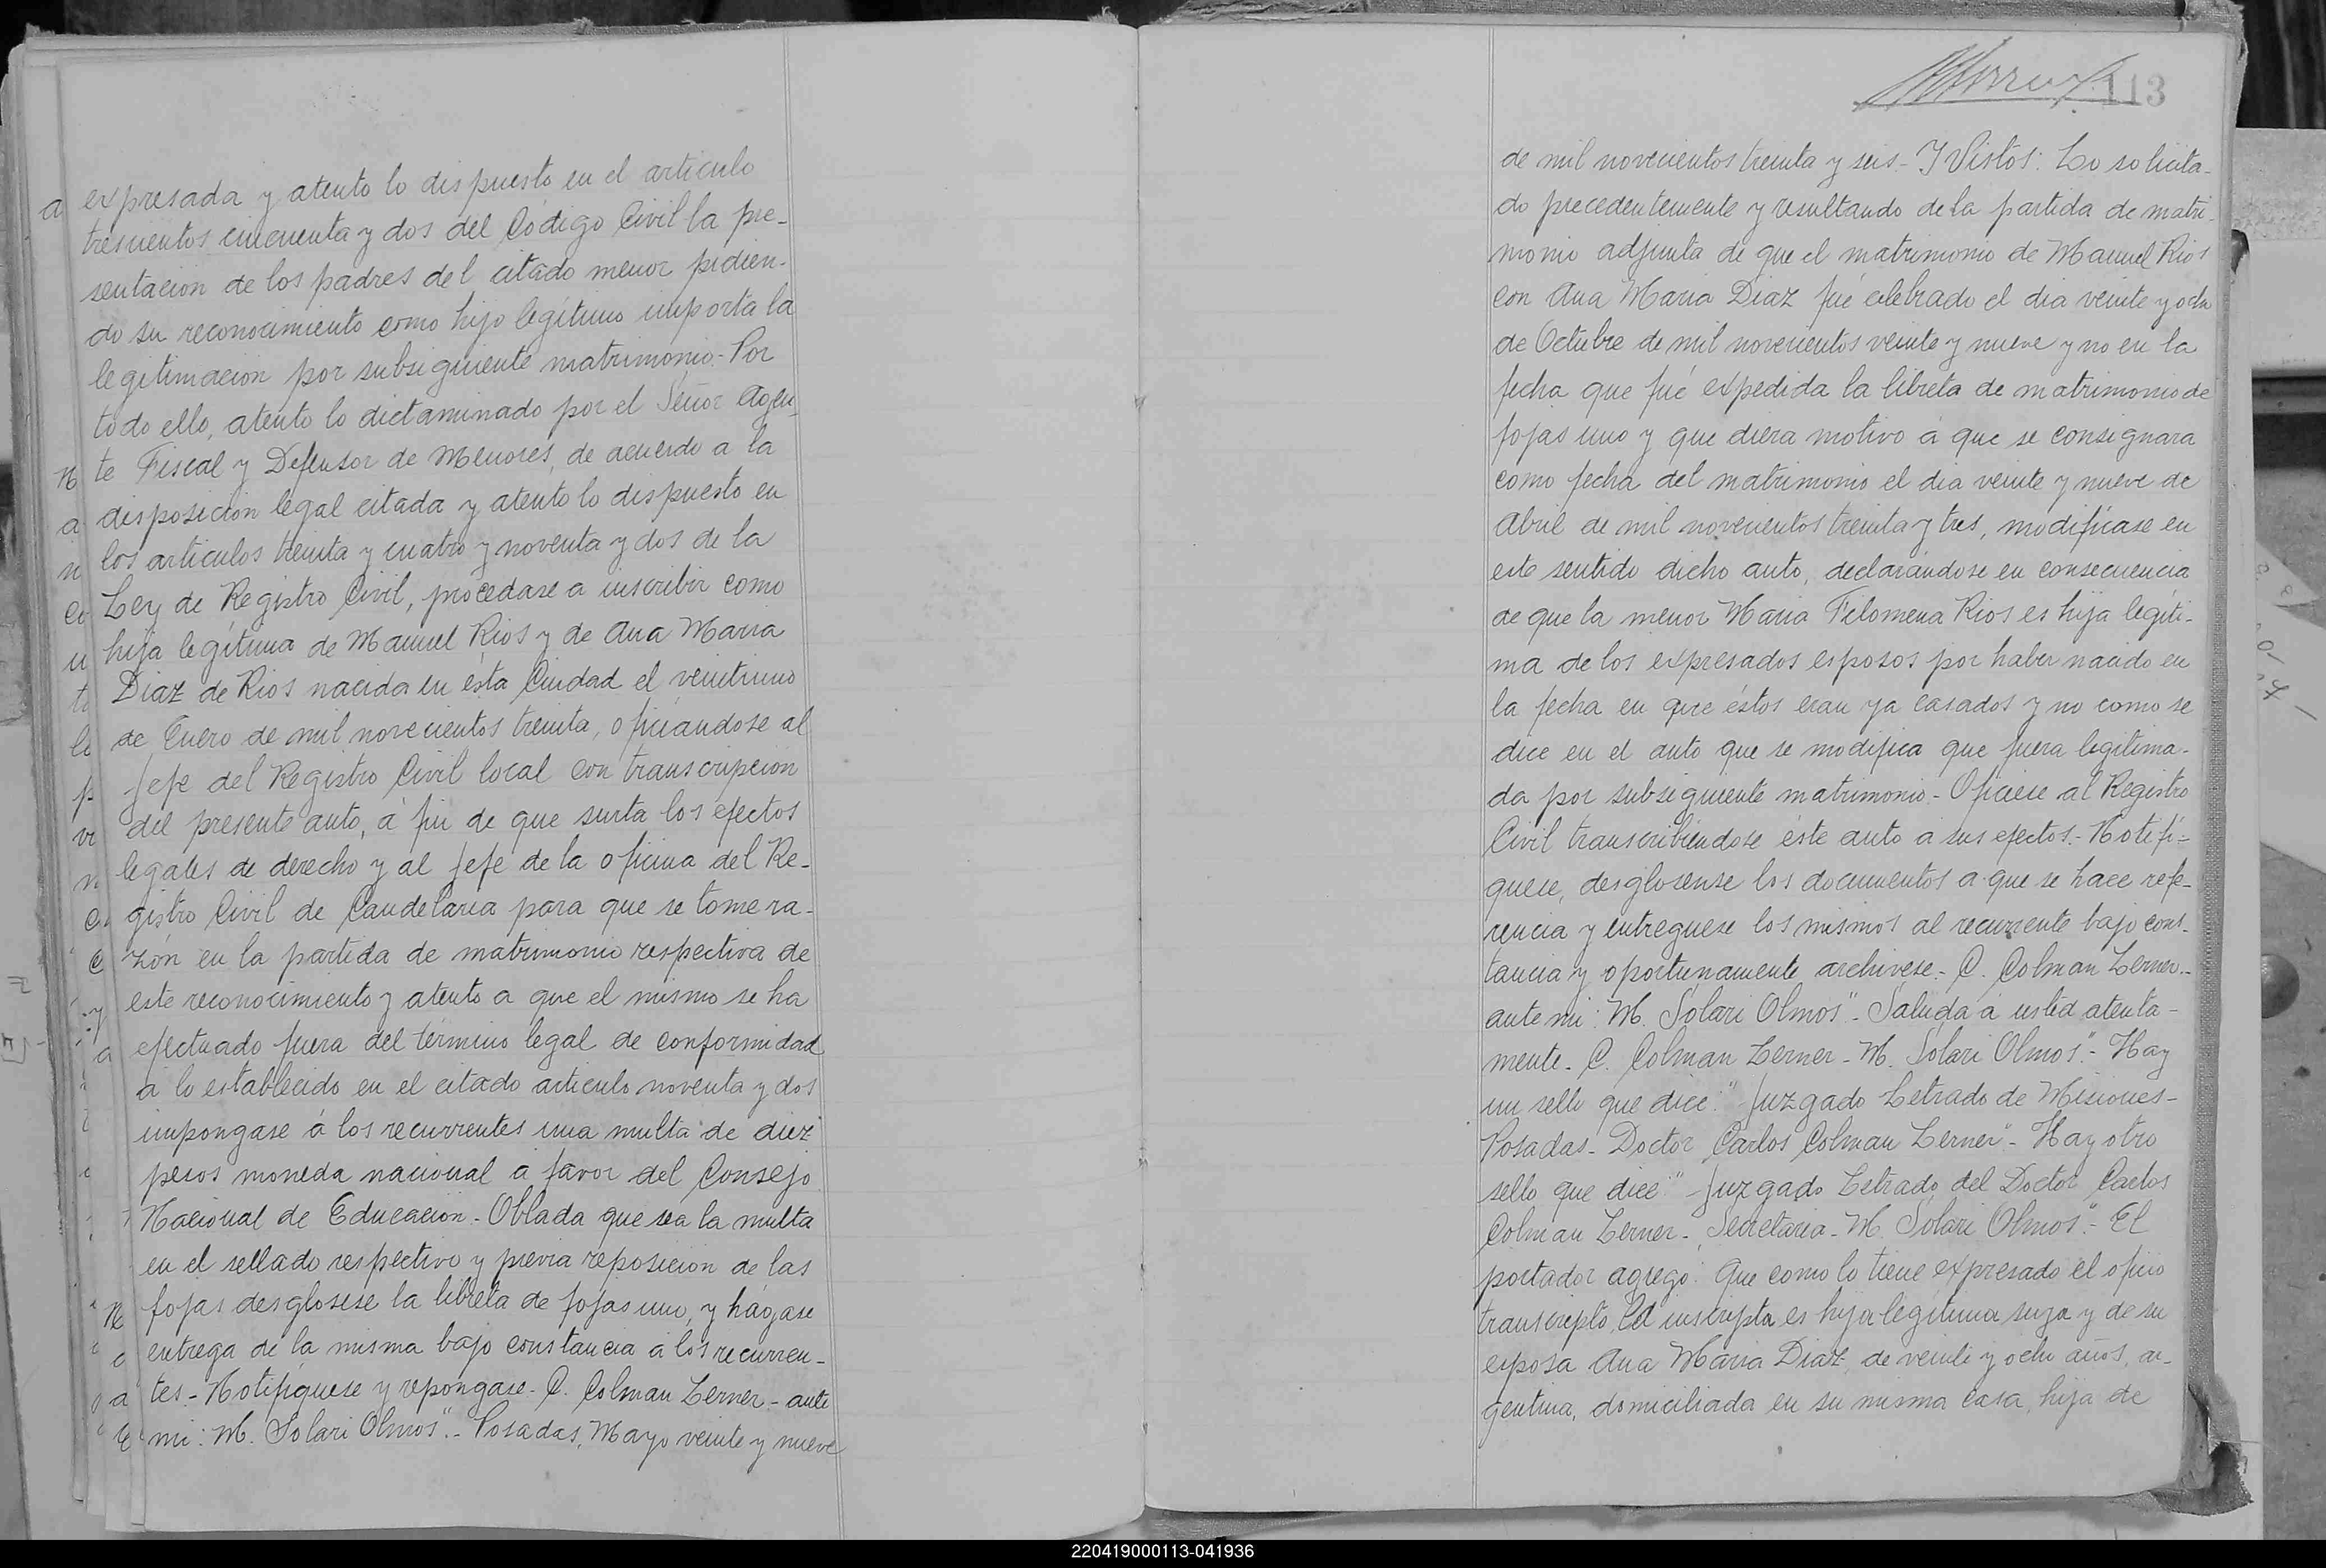 expresada y atento lo dispuesto en el articulo
trescientos cincuenta y dos del Código Civil la pre-
sentacion de los padres del citado menor pidien-
do su reconocimiento como hijo legítimo importa la
legitimacion por subsiguiente matrimonio.- Por
todo ello, atento lo dictaminado por el Señor Agen-
te Fiscal y Defensor de Menores, de acuerdo a la
disposicion legal citada y atento lo dispuesto en
los articulos treinta y cuatro y noventa y dos de la
Ley de Registro Civil, procédase a inscribir como
hija legítima de Manuel Rios y de Ana Maria
Diaz de Rios nacida en ésta Ciudad el veintiuno
de Enero de mil novecientos treinta, oficiándose al
Jefe del Registro Civil local con transcripcion
del presente auto, á fin de que surta los efectos
legales de derecho y al Jefe de la oficina del Re-
gistro Civil de Candelaria para que se tome ra-
zón en la partida de matrimonio respectiva de
este reconocimiento y atento a que el mismo se ha
efectuado fuera del término legal de conformidad
á lo establecido en el citado articulo noventa y dos
impongase á los recurrentes una multa de diez
pesos moneda nacional á favor del Consejo
Nacional de Educacion.- Oblada que sea la multa
en el sellado respectivo y previa reposicion de las
fojas desglosese la libreta de fojas uno, y hágase
entrega de la misma bajo constancia á los recurren-
tes.- Notifiquese y repongase.- C. Colman Lerner - ante
mi: M. Solari Olmos".- Posadas, Mayo veinte y nueve
113
de mil novecientos treinta y seis.- Y Vistos: Lo solicita-
do precedentemente y resultando de la partida de matri-
monio adjunta de que el matrimonio de Manuel Rios
con Ana Maria Diaz fué celebrado el dia veinte y ocho
de Octubre de mil novecientos veinte y nueve y no en la
fecha que fué expedida la libreta de matrimonio de
fojas uno y que diera motivo á que se consignara
como fecha del matrimonio el dia veinte y nueve de
Abril de mil novecientos treinta y tres, modifícase en
este sentido dicho auto, declarándose en consecuencia
de que la menor Maria Filomena Rios es hija legíti-
ma de los expresados esposos por haber nacido en
la fecha en que éstos eran ya casados y no como se
dice en el auto que se modifica que fuera legitima-
da por subsiguiente matrimonio.- Oficiese al Registro
Civil transcribiéndose éste auto a sus efectos.- Notifí-
quese, desglosense los documentos a que se hace refe-
rencia y entreguese los mismos al recurrente bajo cons-
tancia y oportunamente archivese.- C. Colman Lerner.-
ante mi: M. Solari Olmos".- Saluda á usted atenta-
mente.- C. Colman Lerner - M. Solari Olmos".- Hay
un sello que dice: "Juzgado Letrado de Misiones-
Posadas- Doctor Carlos Colman Lerner".- Hay otro
sello que dice: "Juzgado Letrado del Doctor Carlos
Colman Lerner - Secretaria - M. Solari Olmos".- El
portador agregó: Que como lo tiene expresado el oficio
transcripto, la inscripta es hija legítima suya y de su
esposa Ana Maria Diaz, de veinte y ocho años, ar-
gentina, domiciliada en su misma casa, hija de
220419000113-041936